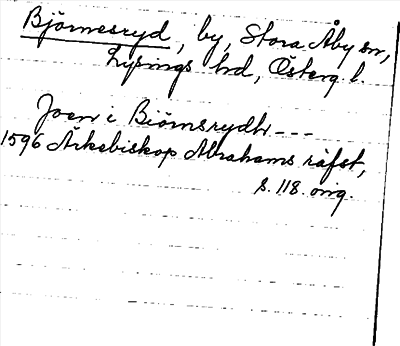 Björnesryd, by, Stora Åby sn,
Lysings hrd, Österg. l.
Joen i Biörnsrydh ---
1596 Ärkebiskop Abrahams räfst,
s. 118. orig.